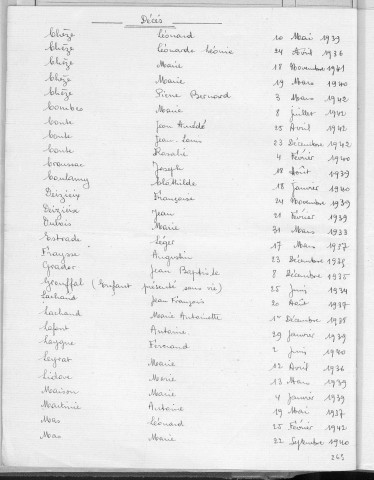 Décès
Chèze Léonard 10 Mai 1939
Chèze Léonarde Léonie 24 Avril 1936
Chèze Marie 18 Novembre 1941
Chèze Marie 19 Mars 1940
Chèze Pierre Bernard 3 Mars 1942
Combes Marie 8 Juillet 1942
Conte Jean Amédé 25 Avril 1942
Conte Jean-Louis 23 Décembre 1942
Conte Rosalie 4 Février 1940
Joseph 18 Août 1939
Clothilde 18 Janvier 1940
Françoise 24 Novembre 1939
Jean 21 Février 1939
Dubois Marie 31 Mars 1938
Estrade Léger 17 Mars 1937
Fraysse Augustin 23 Décembre 1938
Jean Baptiste 8 Décembre 1935
(Enfant présenté sans vie) 25 Juin 1934
Lachaud Jean François 20 Août 1937
Lachaud Marie Antoinette 1er Décembre 1938
Lafont Antoine 29 Janvier 1939
Fernand 2 Juin 1940
Leyrat Marie 12 Avril 1936
Marie 13 Mars 1939
Maison Marie 4 Janvier 1939
Martinie Antoine 19 Mai 1937
Mas Léonard 25 Février 1942
Mas Marie 22 Septembre 1940
265